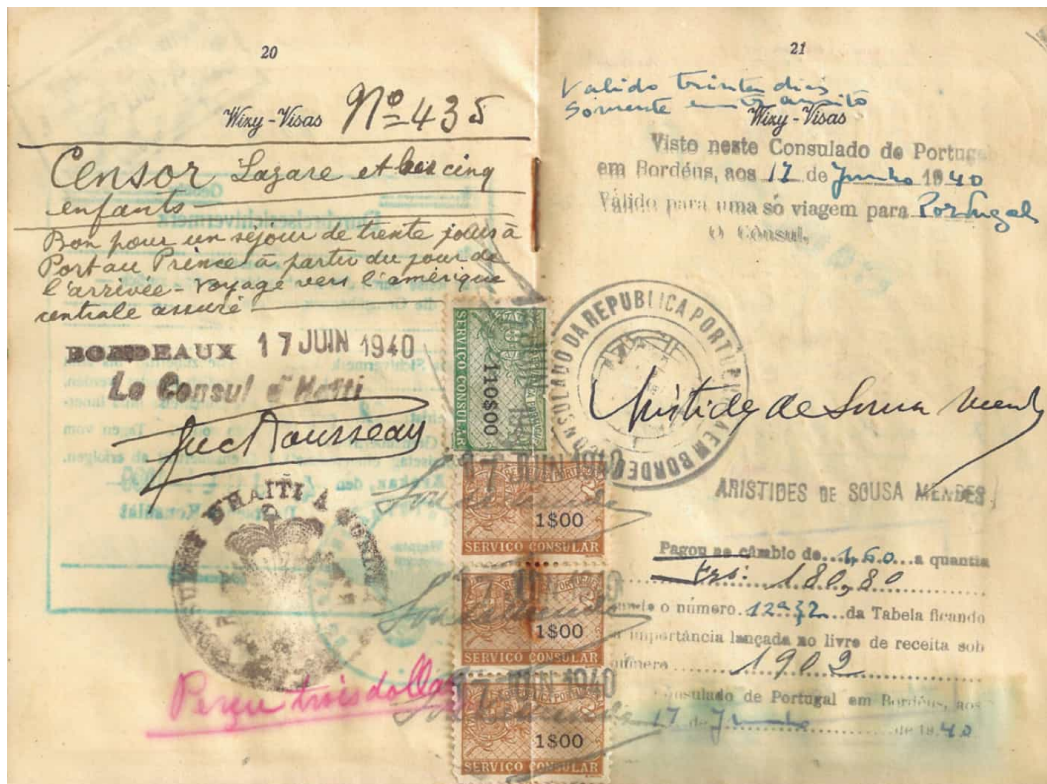 20
Wizy-Visas Nº 435
Censor Lazare et ses cinq
enfants
Bon pour un séjour de trente jours à
Port au Prince à partir du jour de
l'arrivée - voyage vers l'amérique
centrale assuré
BORDEAUX 17 JUIN 1940
Le Consul d'Haïti
D'HAITI À
Perçu trois dollars
SERVICO CONSULAR
110$00
17 JUN 1940
1$00
SERVICO CONSULAR
1$00
SERVICO CONSULAR
17 JUN 1940
1$00
21
Valido trinta dias
Sómente em transito
Wizy-Visas
Visto neste Consulado de Portugal
em Bordéus, aos 17 de Junho 1940
Válido para uma só viagem para Portugal
O Consul,
CONSULADO DA REPUBLICA PORTUGUESA EM BORDEUS
Aristides de Sousa Mendes
ARISTIDES DE SOUSA MENDES
Pagou ao câmbio de 1,60 a quantia
Frs: 180,80
o número da Tabela ficando
importância lançada no livre de receita sob
número 1902
Consulado de Portugal em Bordéus, aos
17 de Junho de 1940